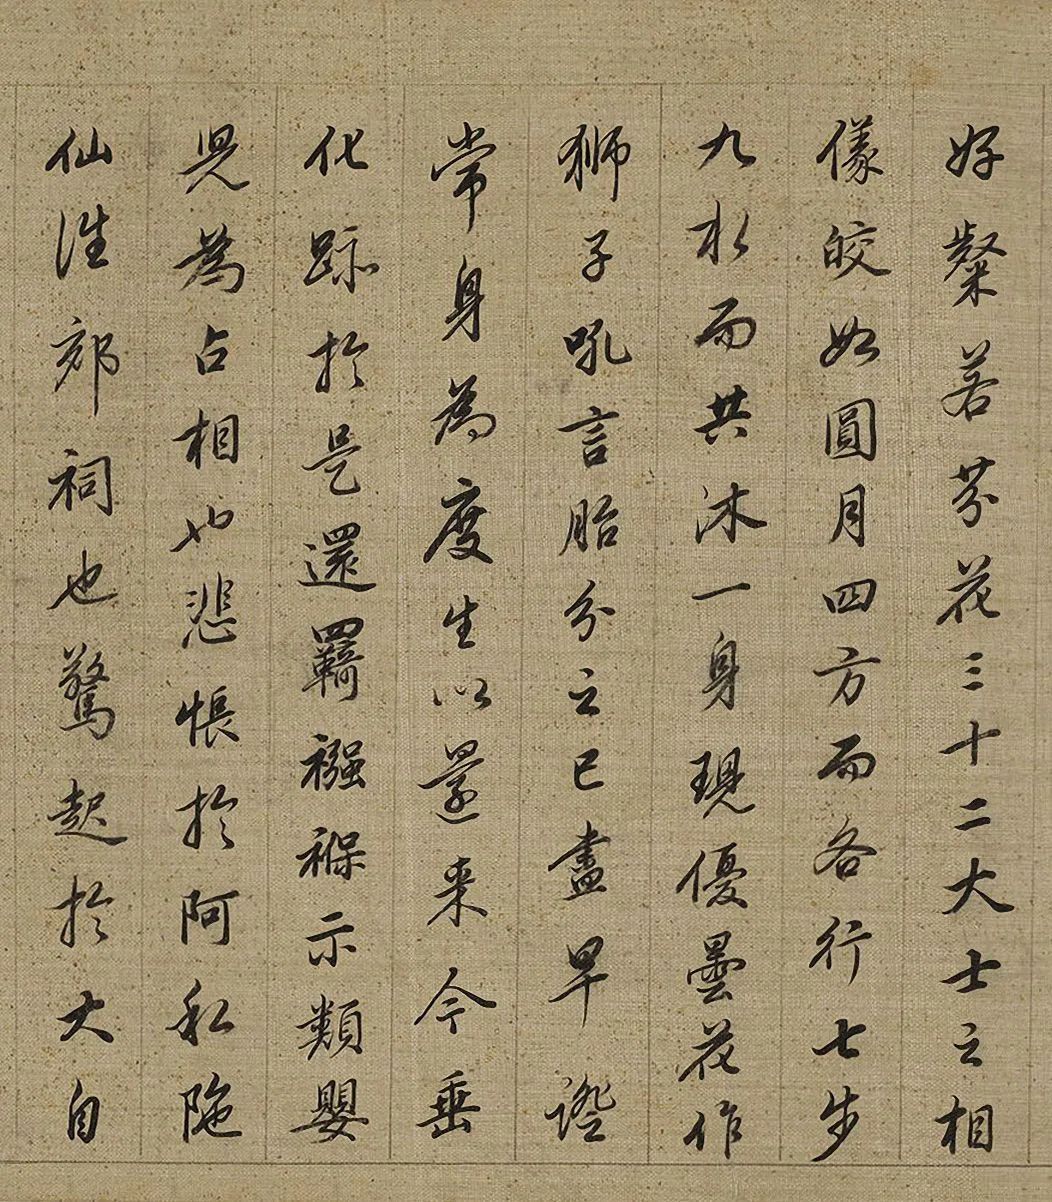 好粲若芬花三十二大士之相
儀皎如圓月四方而各行七步
九水而共沐一身現優曇花作
獅子吼言胎分之已盡早證
常身為度生以還来今垂
化跡於是還羇襁褓示類嬰
児為占相也悲悵於阿私陁
仙淮郊祠也驚起於大自